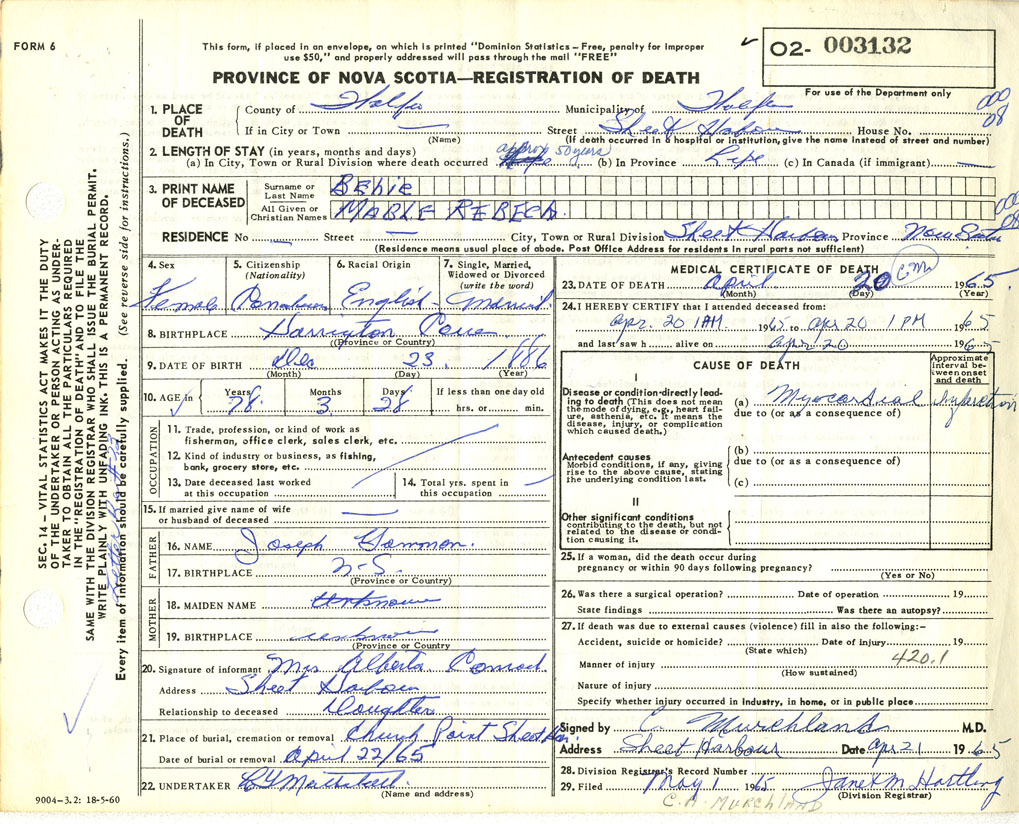 FORM 6
This form, if placed in an envelope, on which is printed "Dominion Statistics – Free, penalty for improper
use $50," and properly addressed will pass through the mail "FREE"
PROVINCE OF NOVA SCOTIA—REGISTRATION OF DEATH
02- 003132
For use of the Department only
000
08
1. PLACE OF DEATH
County of Halfx Municipality of Halfx
If in City or Town — (Name) Street Sheet Harbour House No.
(If death occurred in a hospital or institution, give the name instead of street and number)
2. LENGTH OF STAY (in years, months and days)
(a) In City, Town or Rural Division where death occurred approx 50 years (b) In Province Life (c) In Canada (if immigrant) —
3. PRINT NAME OF DECEASED
Surname or Last Name Behie
All Given or Christian Names MABLE REBECA
RESIDENCE No — Street — City, Town or Rural Division Sheet Harbour Province Nova Scotia
(Residence means usual place of abode. Post Office Address for residents in rural parts not sufficient)
4. Sex Female
5. Citizenship (Nationality) Canadian
6. Racial Origin English
7. Single, Married, Widowed or Divorced (write the word) Married
8. BIRTHPLACE Harrigton Cove
(Province or Country)
9. DATE OF BIRTH Dec 23 1886
(Month) (Day) (Year)
10. AGE in Years 78 Months 3 Days 28 If less than one day old hrs. or min.
OCCUPATION
11. Trade, profession, or kind of work as fisherman, office clerk, sales clerk, etc.
12. Kind of industry or business, as fishing, bank, grocery store, etc.
13. Date deceased last worked at this occupation
14. Total yrs. spent in this occupation —
15. If married give name of wife or husband of deceased —
FATHER
16. NAME Joseph Gammon.
17. BIRTHPLACE N-S.
(Province or Country)
MOTHER
18. MAIDEN NAME Unknown
19. BIRTHPLACE unknown
(Province or Country)
20. Signature of informant Mrs Alberta Conrad
Address Sheet Harbour
Relationship to deceased Daughter
21. Place of burial, cremation or removal Church Point Sheet Har.
Date of burial or removal April 22/65
22. UNDERTAKER
(Name and address)
9004-3.2: 18-5-60
MEDICAL CERTIFICATE OF DEATH
23. DATE OF DEATH April 20 C.M. 1965.
(Month) (Day) (Year)
24. I HEREBY CERTIFY that I attended deceased from:
Apr. 20 1AM 1965 to Apr 20 1 PM 1965
and last saw h alive on Apr 20 1965
CAUSE OF DEATH
Approximate interval between onset and death
I
Disease or condition directly leading to death (This does not mean the mode of dying, e.g., heart failure, asthenia, etc. It means the disease, injury, or complication which caused death.)
(a) Myocardial Infarction
due to (or as a consequence of)
Antecedent causes
Morbid conditions, if any, giving rise to the above cause, stating the underlying condition last.
(b)
due to (or as a consequence of)
(c)
II
Other significant conditions contributing to the death, but not related to the disease or condition causing it.
25. If a woman, did the death occur during pregnancy or within 90 days following pregnancy?
(Yes or No)
26. Was there a surgical operation? Date of operation 19
State findings Was there an autopsy?
27. If death was due to external causes (violence) fill in also the following:–
Accident, suicide or homicide? Date of injury 19
(State which)
420.1
Manner of injury
(How sustained)
Nature of injury
Specify whether injury occurred in industry, in home, or in public place
Signed by C. Murchland M.D.
Address Sheet Harbour Date Apr 21 1965
28. Division Registrar's Record Number
29. Filed May 1 1965 Janet M Hartling
(Division Registrar)
C. A. MURCHLAND
SEC. 14 – VITAL STATISTICS ACT MAKES IT THE DUTY
OF THE UNDERTAKER OR PERSON ACTING AS UNDERTAKER
TO OBTAIN ALL THE PARTICULARS REQUIRED
IN THE "REGISTRATION OF DEATH" AND TO FILE THE
SAME WITH THE DIVISION REGISTRAR WHO SHALL ISSUE THE BURIAL PERMIT.
WRITE PLAINLY WITH UNFADING INK. THIS IS A PERMANENT RECORD.
Every item of information should be carefully supplied. (See reverse side for instructions.)